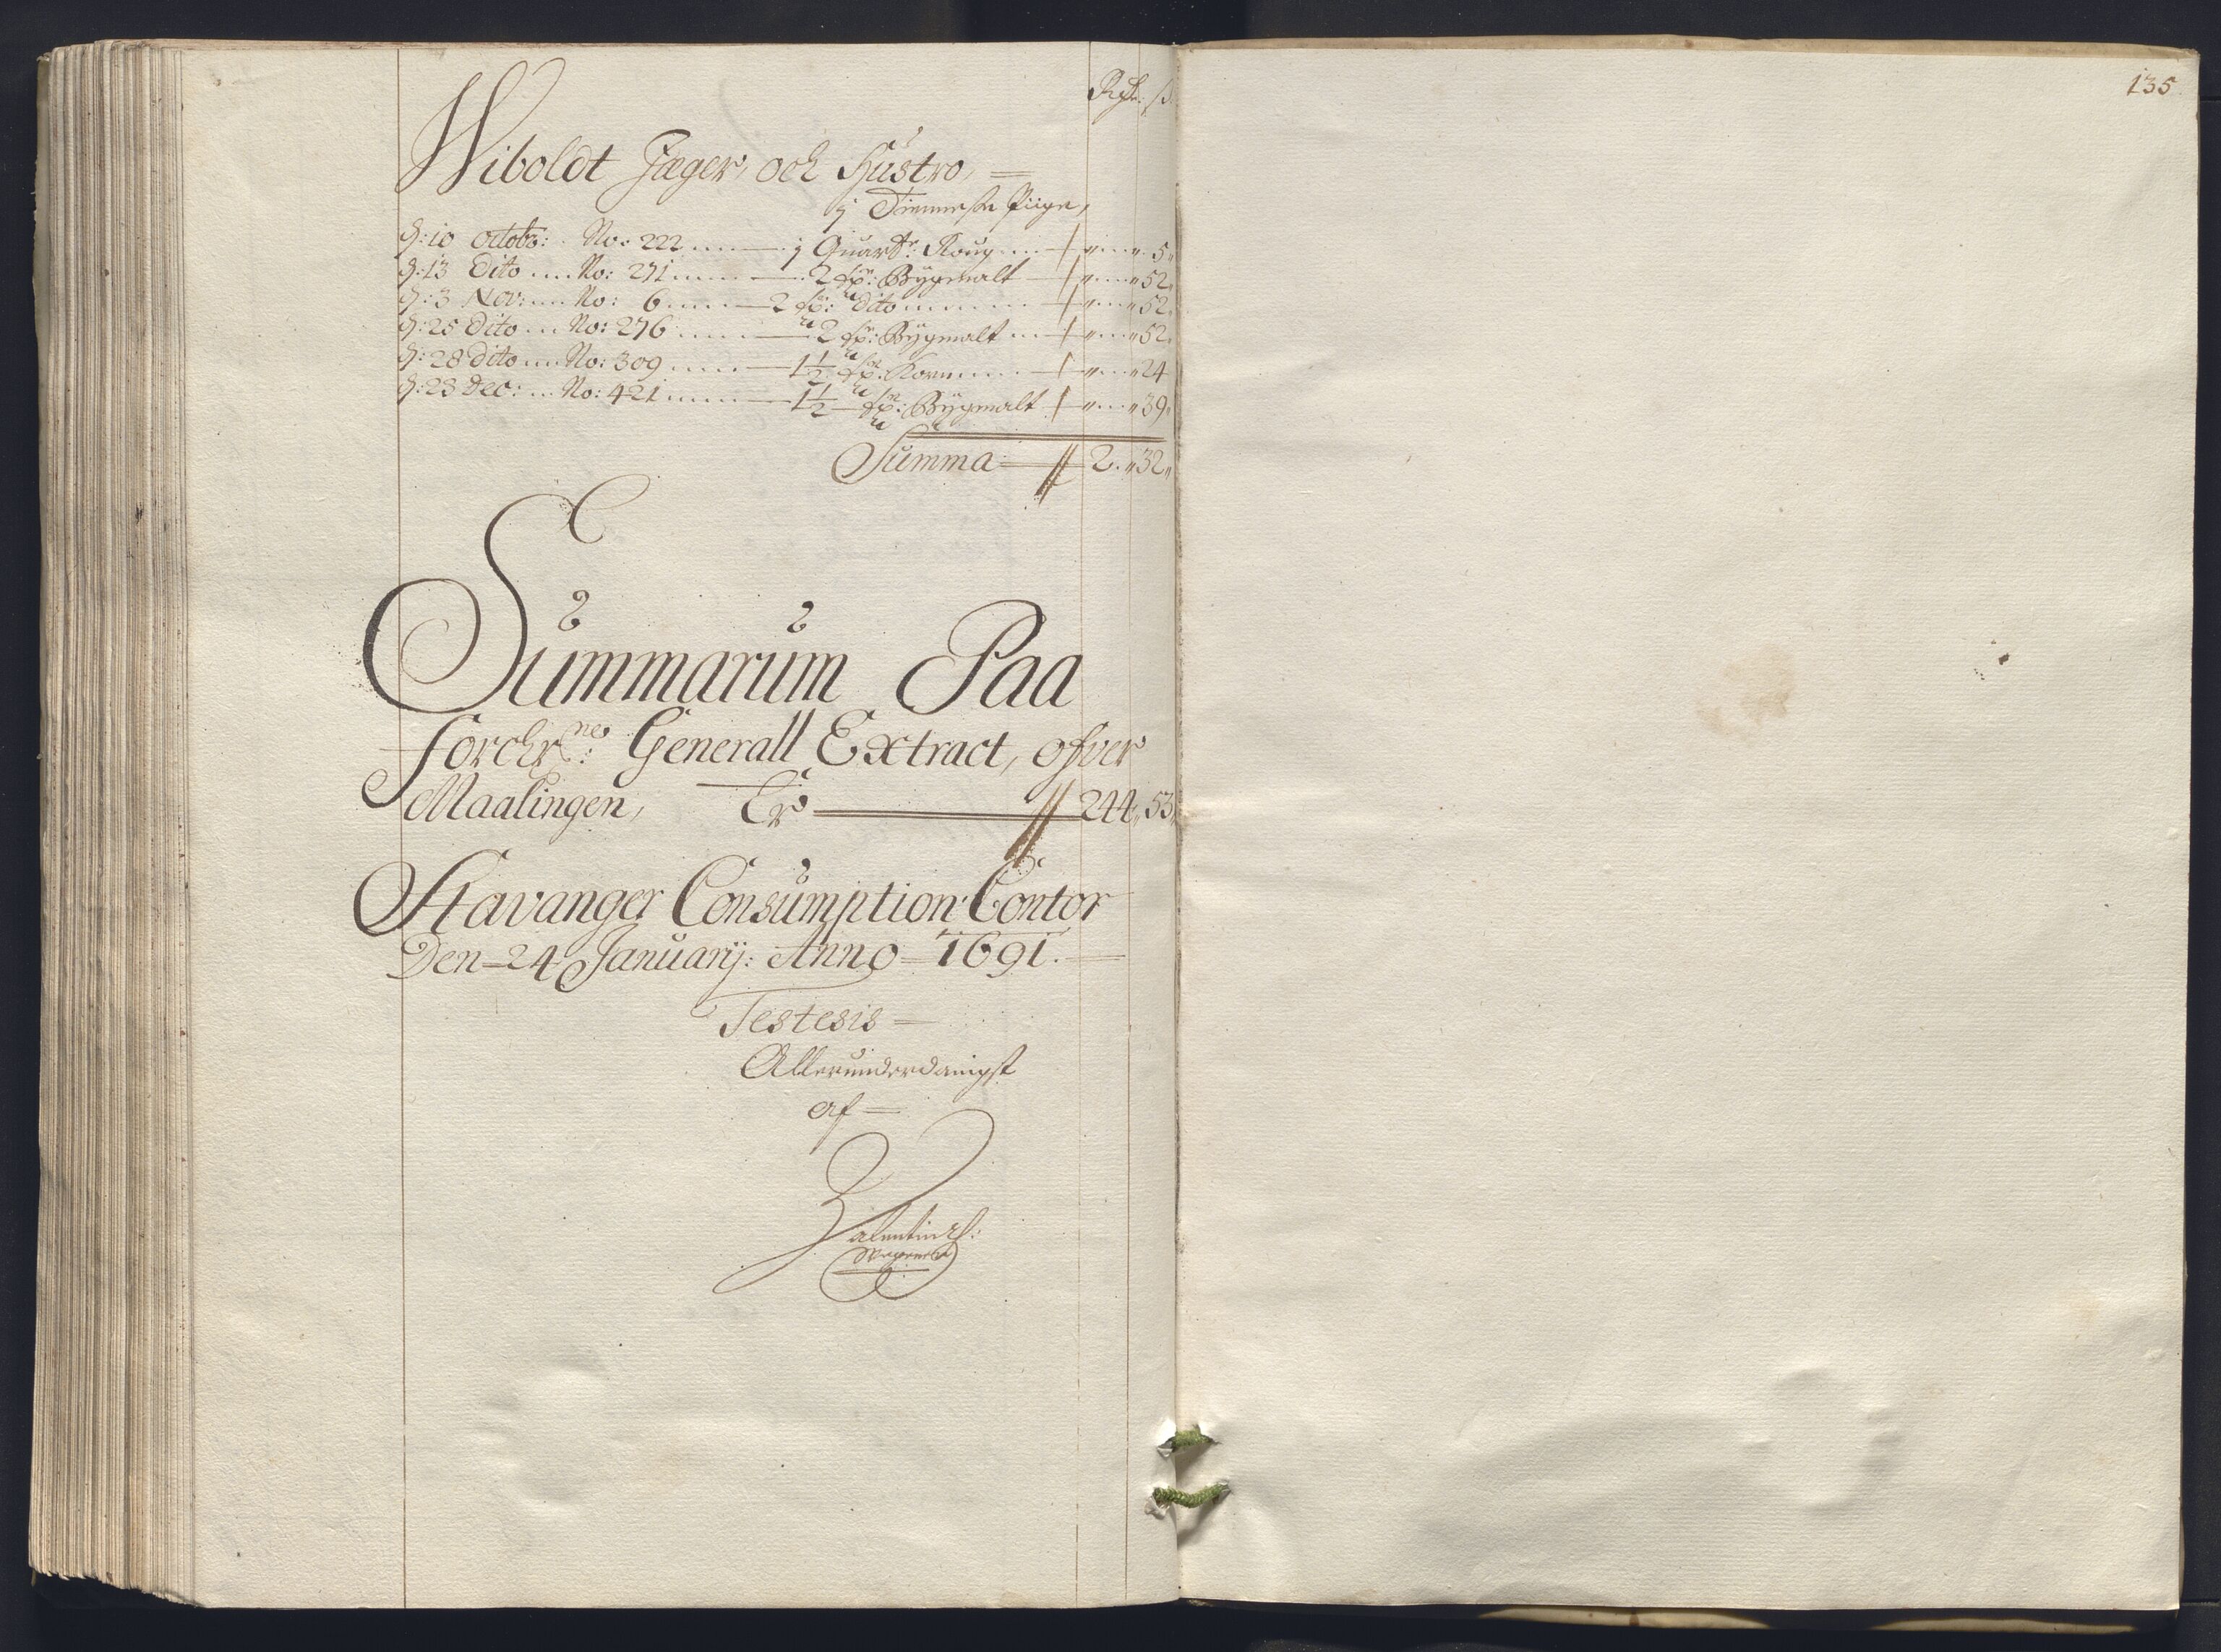 Rdr: ß:
Wiboldt Jæger, och Hustro,
j Tienneste Piige,
d: 10 Octobr: No: 222 j Quartr: Roug 5
d: 13 Dito No: 271 2 Bÿgmalt 52
d: 3 Nov: No: 6 2 dito 52
d: 25 Dito No: 276 2 Bÿgmalt 52
d: 28 dito No: 309 1½ Korn 24
d: 23 Dec: No: 421 1½ Bÿgmalt 39
Summa 2 32
Summarum Paa
forchrne: Generall Extract, ofver
Maalingen, Er 244 53
Stavanger Consumption Contor
Den 24 Januarij: Anno 1691.
Testesis
Allerunderdanigst
af
Valentin
135